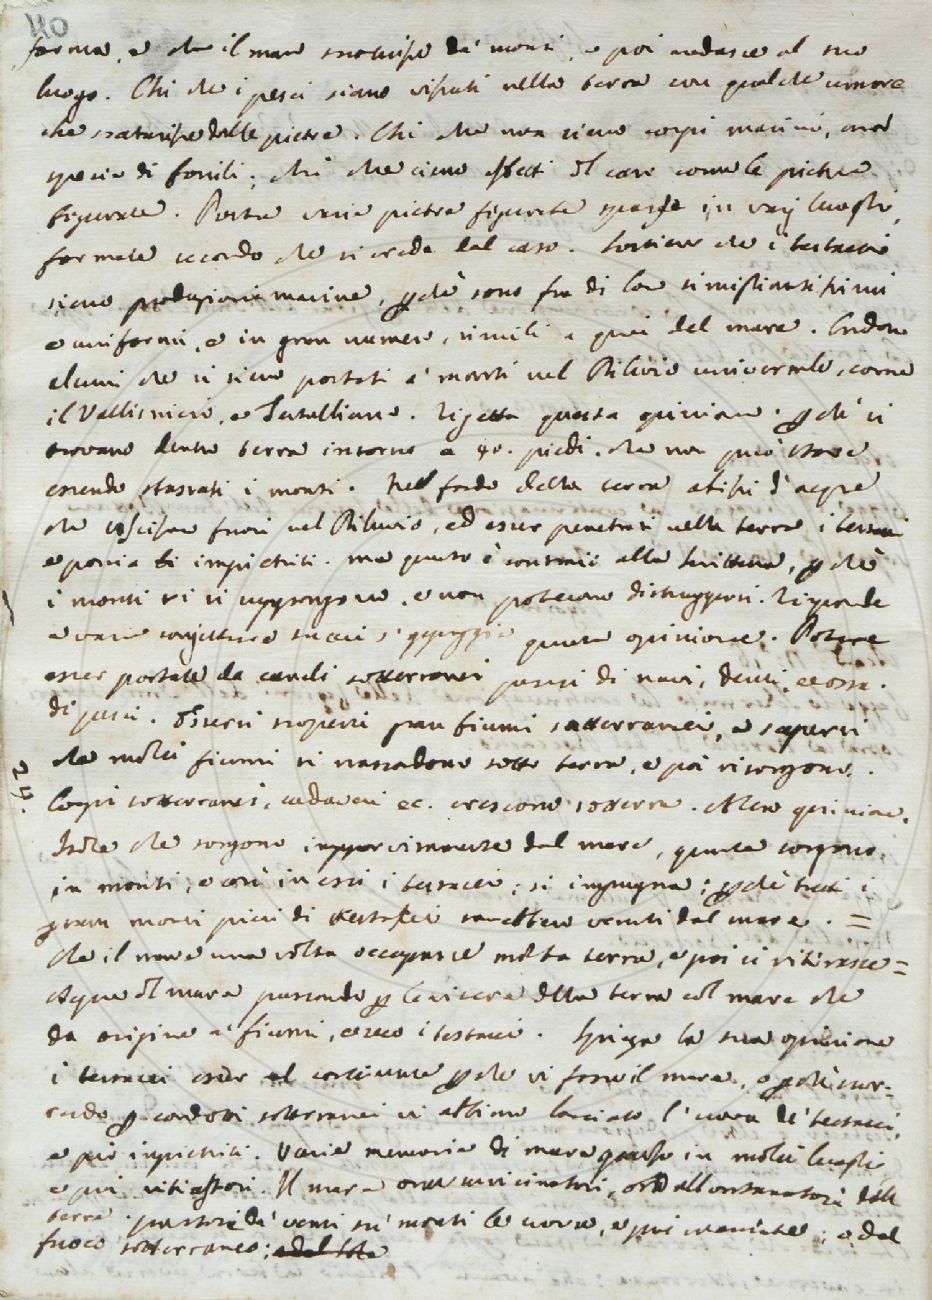 40
forma, e che il mare smovesse da' monti, e poi andasse al suo
luogo. Chi che i pesci siano vissuti nella terra con qualche umore
che scaturisse dalle pietre. Chi che non sieno corpi marini, ma
specie di fossili; chi che sieno effetti del caso come le pietre
figurate. Porta varie pietre figurate sparse in varj luoghi,
formate secondo che si crede dal caso. Sostiene che i testacei
sieno produzioni marine, perchè sono fra di loro simigliantissimi
e uniformi, e in gran numero, simili a quei del mare. Credono
alcuni che si sieno portati a' monti nel Diluvio universale, come
il Vallisnieri, e Tertulliano. Rigetta questa opinione. perchè si
trovano dentro terra intorno a 40. piedi. che non può essere,
essendo i monti. Nel fondo della terra abissi d'acque
che uscissero fuori nel Diluvio, ed esser penetrati nella terra i testacei
e poscia impietriti. ma questo è contrario alla Scrittura, perchè
i monti vi si suppongono, e non potevano distruggersi. Risponde
e varie conjetture questa opinione. Potere
esser portate da canali sotterranei pezzi di navi, denti, e ossa
di pesci. Essersi scoperti gran fiumi sotterranei, e sapersi
che molti fiumi si nascondono sotto terra, e poi risorgono.
24.
Corpi sotterranei, cadaveri ec. crescono sotterra. Altra opinione.
Isole che sorgono improvvisamente dal mare, queste sorgono
in monti, e così in essi i testacei; si impugna; perchè tutti i
gran monti pieni di testacei sarebbero venuti dal mare. =
Che il mare una volta occupasse molta terra, e poi si ritirasse =
Acque del mare passando per le viscere della terra col mare che
da origine a' fiumi, e reca i testacei. Spiega la sua opinione
i testacei esser al continente perchè vi fosse il mare, o perchè scor-
rendo per condotti sotterranei vi abbiano lasciato l'uova de' testacei,
e poi impietriti. Varie memorie di mare in molti luoghi
e poi ritiratosi. Il mare ora avvicinatosi, ora allontanatosi dalla
terra. portate da' venti su' monti le uova, e poi ; o dal
fuoco sotterraneo;